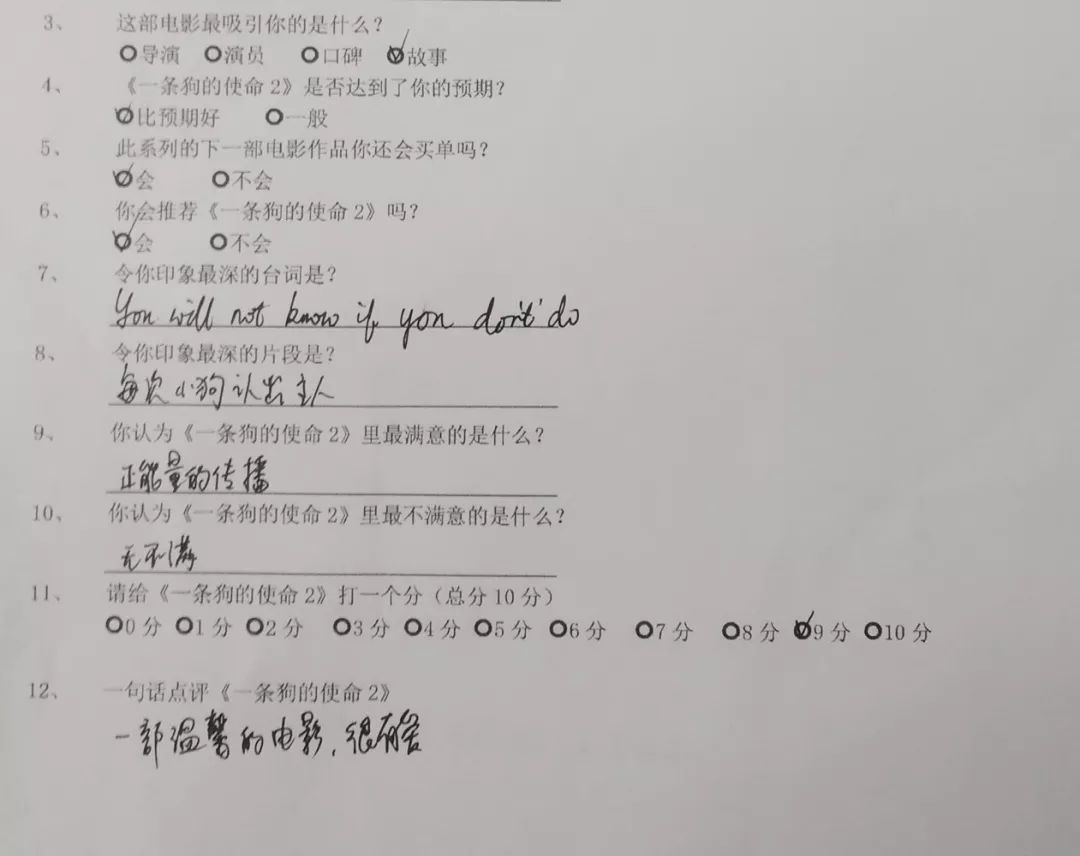 3、 这部电影最吸引你的是什么？
导演 演员 口碑 故事
4、 《一条狗的使命2》是否达到了你的预期？
比预期好 一般
5、 此系列的下一部电影作品你还会买单吗？
会 不会
6、 你会推荐《一条狗的使命2》吗？
会 不会
7、 令你印象最深的台词是？
You will not know if you don't do
8、 令你印象最深的片段是？
每次小狗认出主人
9、 你认为《一条狗的使命2》里最满意的是什么？
正能量的传播
10、 你认为《一条狗的使命2》里最不满意的是什么？
无不满
11、 请给《一条狗的使命2》打一个分（总分10分）
0分 1分 2分 3分 4分 5分 6分 7分 8分 9分 10分
12、 一句话点评《一条狗的使命2》
一部温馨的电影，很有